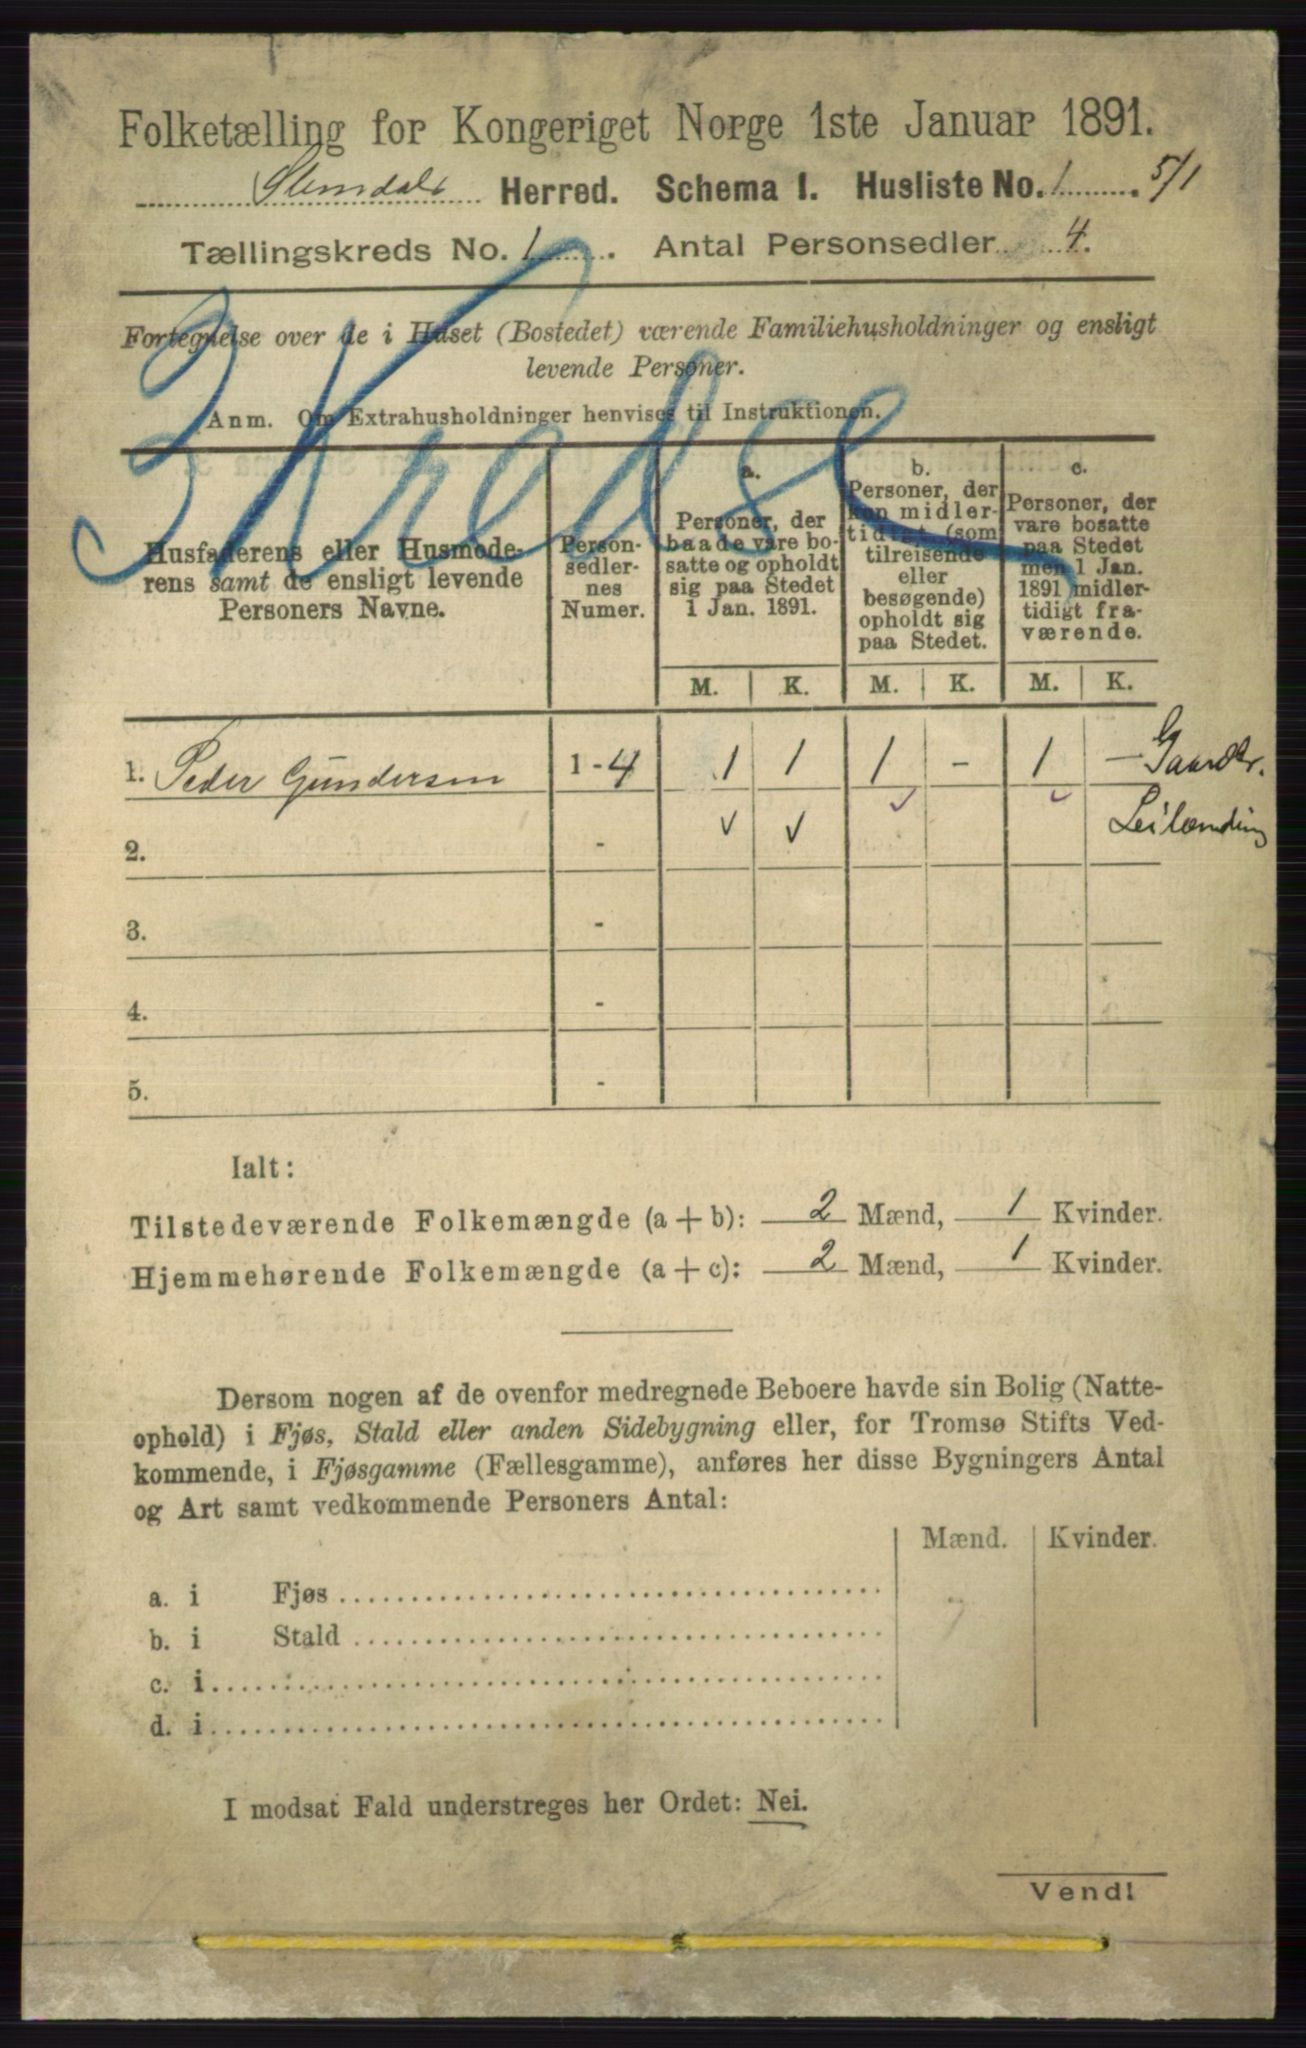 Folketælling for Kongeriget Norge 1ste Januar 1891.
Slemdal Herred. Schema 1. Husliste No. 1. 5/1
Tællingskreds No. 1. Antal Personsedler 4.
3 Kredse
Fortegnelse over de i Huset (Bostedet) værende Familiehusholdninger og ensligt
levende Personer.
Anm. Om Extrahusholdninger henvises til Instruktionen.
Husfaderens eller Husmode-
rens samt de ensligt levende
Personers Navne.
Person-
sedler-
nes
Numer.
a.
Personer, der
baade vare bo-
satte og opholdt
sig paa Stedet
1 Jan. 1891.
b.
Personer, der
kun midler-
tidigt (som
tilreisende
eller
besøgende)
opholdt sig
paa Stedet.
c.
Personer, der
vare bosatte
paa Stedet
men 1 Jan.
1891 midler-
tidigt fra-
værende.
M. K. M. K. M. K.
1. Peder Gundersen 1-4 1 1 1 - 1 - Gaardbr.
2. - Leilænding
3. -
4. -
5. -
Ialt:
Tilstedeværende Folkemængde (a+b): 2 Mænd, 1 Kvinder.
Hjemmehørende Folkemængde (a+c): 2 Mænd, 1 Kvinder.
Dersom nogen af de ovenfor medregnede Beboere havde sin Bolig (Natte-
ophold) i Fjøs, Stald eller anden Sidebygning eller, for Tromsø Stifts Ved-
kommende, i Fjøsgamme (Fællesgamme), anføres her disse Bygningers Antal
og Art samt vedkommende Personers Antal:
Mænd. Kvinder.
a. i Fjøs
b. i Stald
c. i
d. i
I modsat Fald understreges her Ordet: Nei.
Vend!